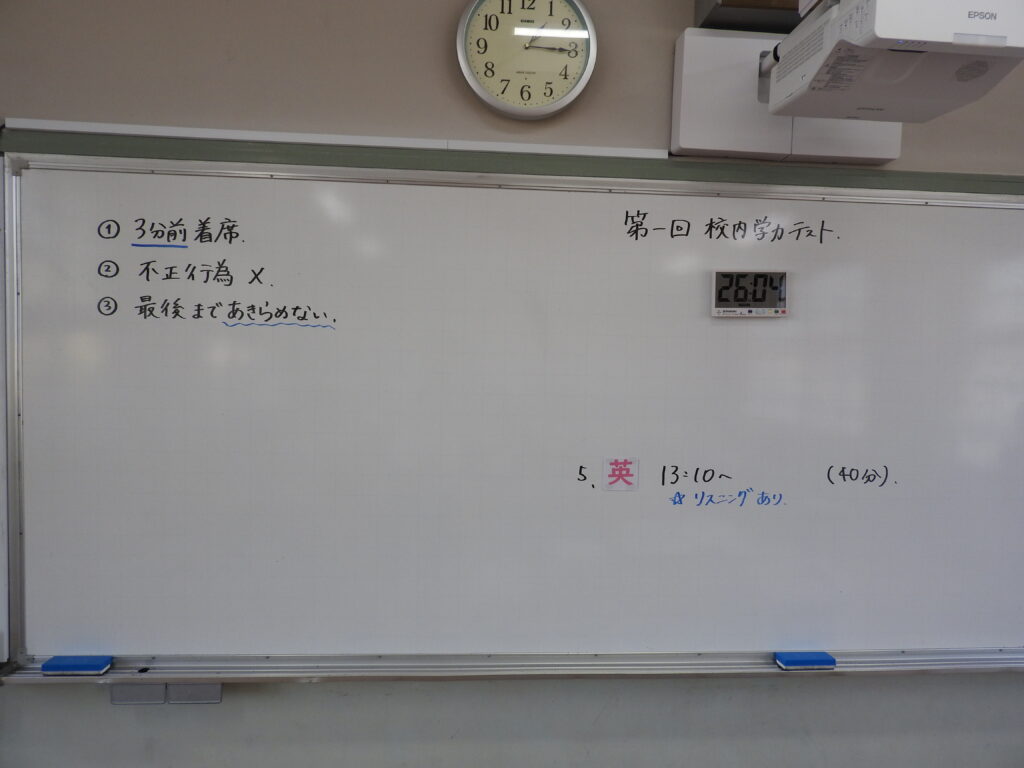 11 12 1 2 3 4 5 6 7 8 9 10
CASIO
EPSON
EPSON
① 3分前着席.
② 不正行為 ×.
③ 最後まであきらめない.
第一回 校内学力テスト.
26:04
5. 英 13:10〜 (40分).
☆ リスニングあり.